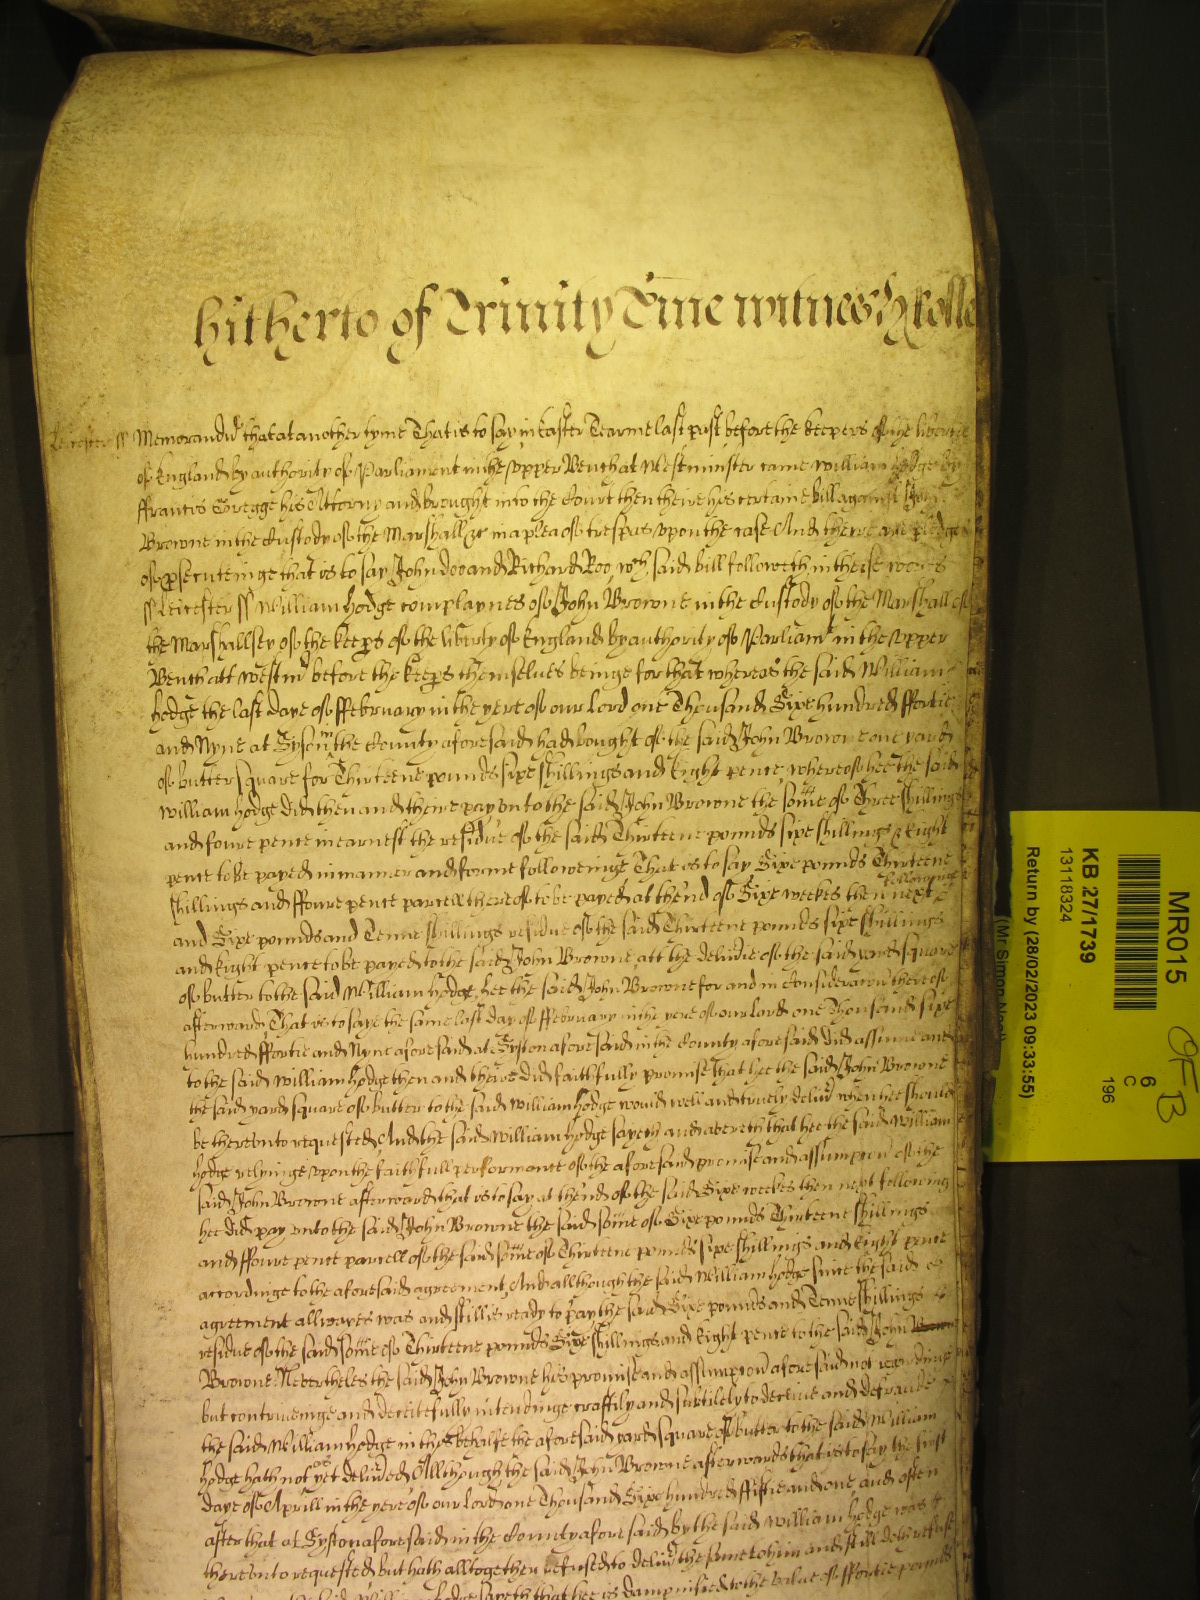 hitherto of Trinity Tme witnes H Rolle
Leicester ss Memorand that at another tyme That is to say in Easter Tearme last past before the keepers of the libertie
of England by authority of Parliament in the Upper Bench at Westminster came William Hodge by
ffrancis Gregge his Attorny and brought into the Court then theire his certaine bill against John
Browne in the Custody of the Marshall &c in a plea of trespas upon the case And there are pledges
of psecuteinge that is to say John doo and Richard Roo wch said bill followeth in theise words
ss Leicester ss William Hodge complaynes of John Browne in the Custody of the Marshall of
the Marshallsey of the keeps of the liberty of England by authority of Parliamt in the Upper
Bench att Westmr before the keeps themselves beinge for that whereas the said William
Hodge the last daye of ffebruary in the yere of our Lord one Thousand Sixe hundred ffortie
and Nyne at Syson in the County aforesaid had bought of the said John Browne one yard
of butter square for Thirteene pounds sixe shillings and Eight pence whereof hee the said
William Hodge did then and theire pay unto the said John Browne the some of Three shillings
and foure pence in earnest the residue of the said Thirteene pounds sixe shillings & Eight
pence to be payed in manner and forme followeinge That is to say Sixe pounds Thirteene
shillings and ffoure pence parcell thereof to be payed at th'end of Sixe weekes then next followinge
and Sixe pounds and Tenne shillings residue of the said Thirteene pounds sixe shillings
and Eight pence to be payed to the said John Browne att the delivie of the said yard square
of butter to the said William Hodge hee the said John Browne for and in Consideracon thereof
afterwards That is to saye the same last day of ffebruary in the yere of our Lord one Thousand sixe
hundred ffortie and Nyne aforesaid at Syston aforesaid in the County aforesaid did assume and
to the said William Hodge then and theire did faithfully promise That hee the said John Browne
the said yard square of butter to the said William Hodge would well and truely deliv when hee should
be thereunto requested And the said William Hodge sayeth and avereth that hee the said William
Hodge relyinge upon the faithfull performance of the aforesaid promise and assumpcon of the
said John Browne afterward that is to say at th'end of the said Sixe weekes then next following
hee did pay unto the said John Browne the said some of Sixe pounds Thirteene shillings
and ffoure pence parcell of the said some of Thirteene pounds sixe shillings and Eight pence
accordinge to the aforesaid agreement And allthough the said William Hodge since the said
agreement allwayes was and still is ready to pay the said Sixe pounds and Tenne shillings
residue of the said some of Thirteene pounds Sixe shillings and Eight pence to the said John
Browne Nevertheles the said John Browne his promise and assumpcon aforesaid not regarding
but contriveinge and deceitefully intendinge craftily and subtilely to deceive and defraude
the said William Hodge in this behalfe the aforesaid yard square of butter to the said William
Hodge hath not as yet delived Allthough the said John Browne afterwards that is to say the first
daye of Aprill in the yere of our Lord one Thousand Sixe hundred ffiftie and one and often
after that at Syston aforesaid in the County aforesaid by the said William Hodge was
thereunto requested but hath alltogether refused to deliv the same to him and still doth refuse
Hodge sayeth that hee is dampnified to the value of ffortie pounds
MR015
KB 27/1739
13118324
Return by (28/02/2023 09:33:55)
6
C
196
OFB